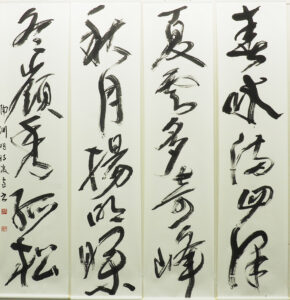 春水滿四澤
夏雲多奇峰
秋月揚明暉
冬嶺秀孤松
陶淵明詩